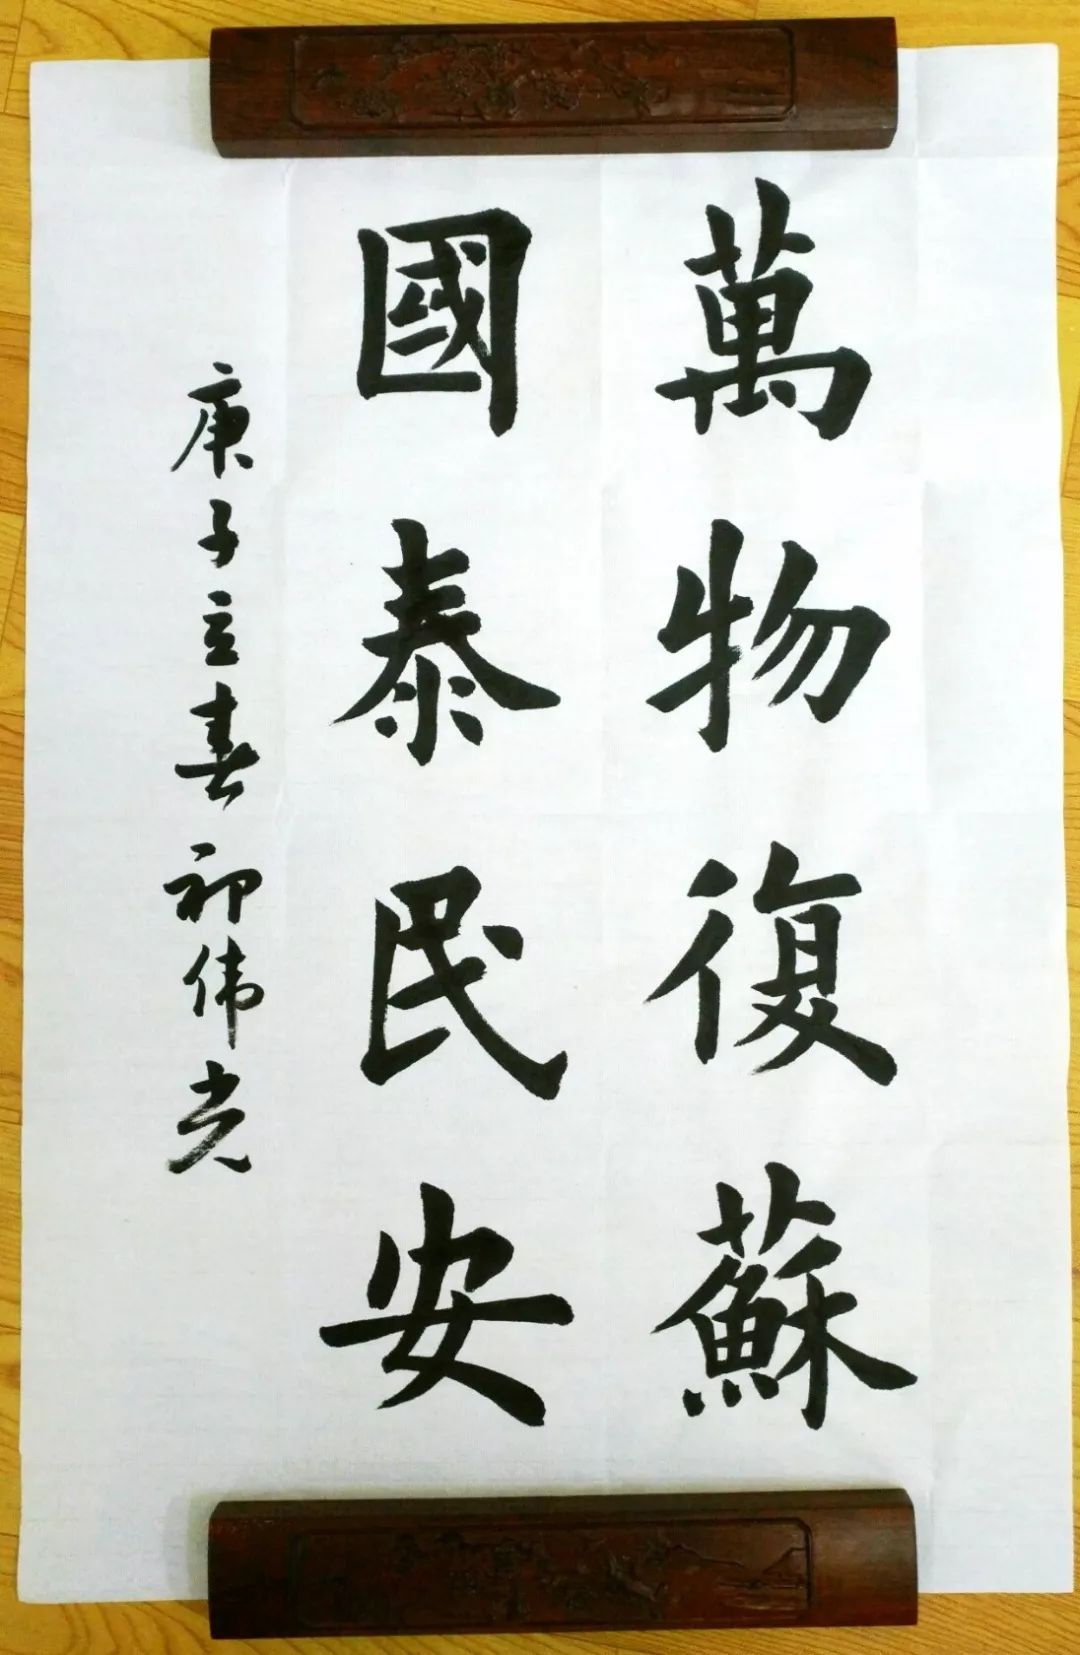 萬物復蘇
國泰民安
庚子立春 祁伟光